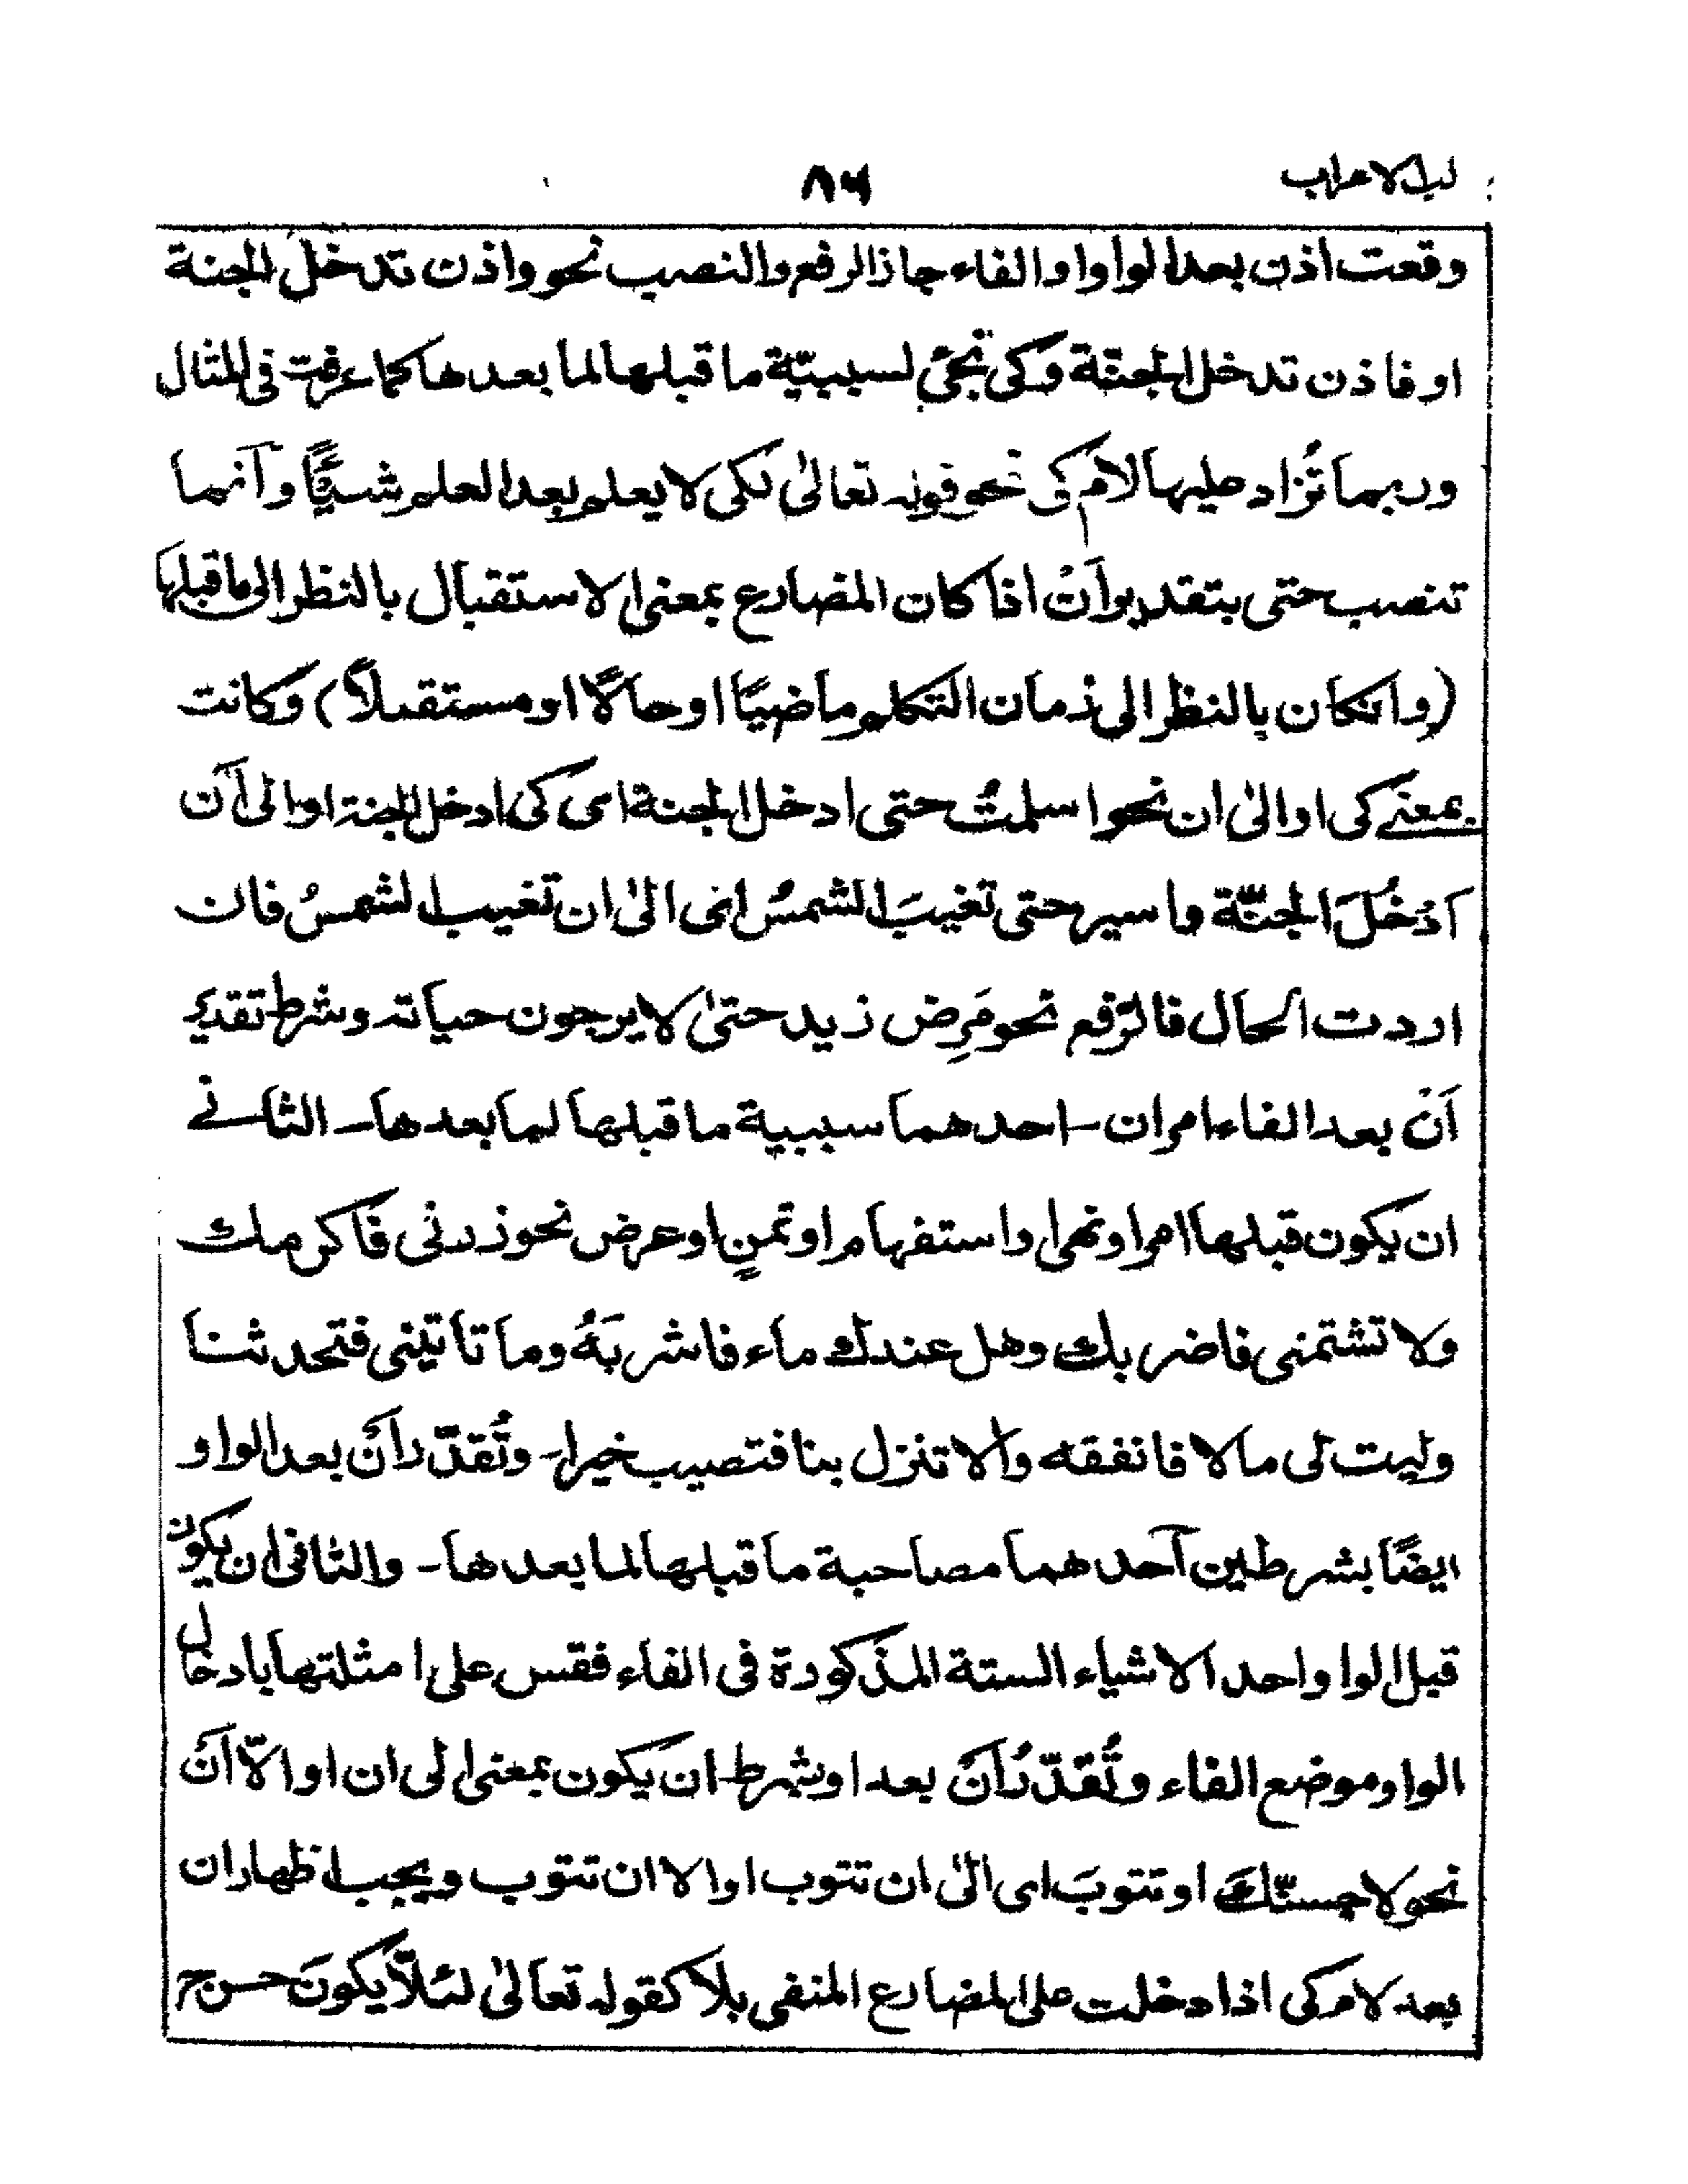 لب الاعراب
٨٦
وقعت اذن بعد الواو او الفاء جاز الرفع والنصب نحو واذن تدخل الجنة
او فاذن تدخل الجنّة وكى تجئ لسببيّة ما قبلها لما بعدها كما عرفت فى المثال
وربما تُزاد عليها لام كى نحو قوله تعالىٰ لكى لا يعلم بعد العلم شيئًا وانما
تنصب حتى بتقدير اَنْ اذا كان المضارع بمعنى الاستقبال بالنظر الى ما قبلها
(وانكان بالنظر الى زمان التكلم ماضيًا او حالًا او مستقبلاً) وكانت
بمعنے كى او الىٰ ان نحو اسلمتُ حتى ادخل الجنة اى كى ادخل الجنة او الى اَن
اَدْخُلَ الجنّة واسير حتى تغيبَ الشمسُ اى الىٰ ان تغيب الشمسُ فان
اردت الحال فالرّفع نحو مَرِض زيد حتىٰ لا يرجون حياته وشرط تقدير
اَنْ بعد الفاء امران - احدهما سببية ما قبلها لما بعدها - الثانے
ان يكون قبلها امر او نهى او استفهام او تمنٍ او عرض نحو زدنى فاكرمك
ولا تشتمنى فاضربك وهل عندك ماء فاشربَهُ وما تاتينى فتحدثنا
وليت لى مالا فانفقه والا تنزل بنا فتصيب خيرا - وتُقدّر اَنْ بعد الواو
ايضًا بشرطين احدهما مصاحبة ما قبلها لما بعدها - والثانى ان يكون
قبل الواو احد الاشياء الستة المذكورة فى الفاء فقس على امثلتها بادخال
الواو موضع الفاء وتُقدّرُ اَنْ بعد او بشرط ان يكون بمعنى الى ان او الّا اَنْ
نحو لاحبسنّك او تتوبَ اى الىٰ ان تتوب او الا ان تتوب ويجب اظهار ان
بعد لام كى اذا دخلت على المضارع المنفى بلا كقوله تعالىٰ لئلّا يكونَ حـ ج